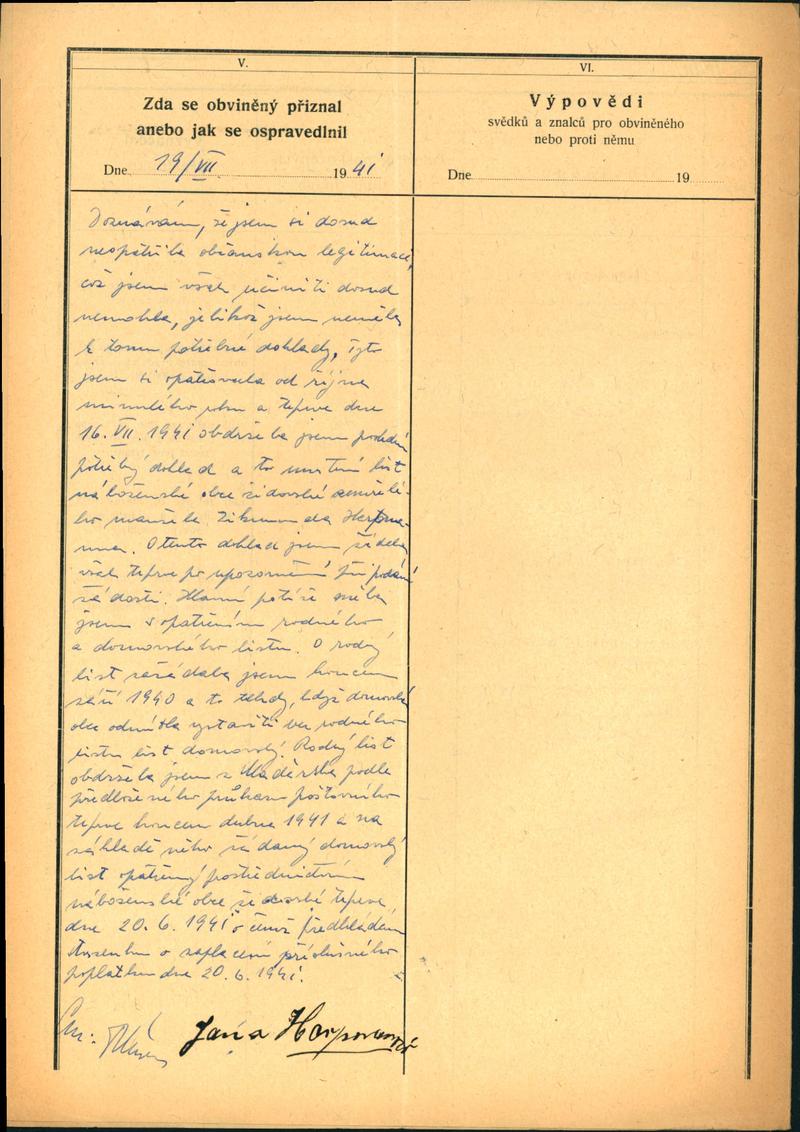 V.
Zda se obviněný přiznal
anebo jak se ospravedlnil
Dne 19/VII. 1941
VI.
Výpovědi
svědků a znalců pro obviněného
nebo proti němu
Dne 19
Doznávám, že jsem si dosud
neopatřila občanskou legitimaci,
což jsem však učiniti dosud
nemohla, jelikož jsem neměla
k tomu potřebné doklady, Tyto
jsem si opatřovala od října
minulého roku a teprve dne
16. VII. 1941 obdržela jsem poslední
potřebný doklad a to úmrtní list
náboženské obce židovské zemřelé-
ho manžela Zikmunda
O tento doklad jsem žádala
však teprve po upozornění při podání
žádosti. Hlavní potíže měla
jsem s opatřením rodného
a domovského listu. O rodný
list zažádala jsem koncem
září 1940 a to tehdy, když domovská
obec odmítla vystaviti bez rodného
listu list domovský. Rodný list
obdržela jsem z Maďarska podle
předloženého průkazu poštovního
teprve koncem dubna 1941 a na
základě něho žádaný domovský
list opatřený prostřednictvím
náboženské obce židovské teprve
dne 20. 6. 1941 o čemž předkládám
stvrzenku o zaplacení příslušného
poplatku dne 20. 6. 1941.
Jana